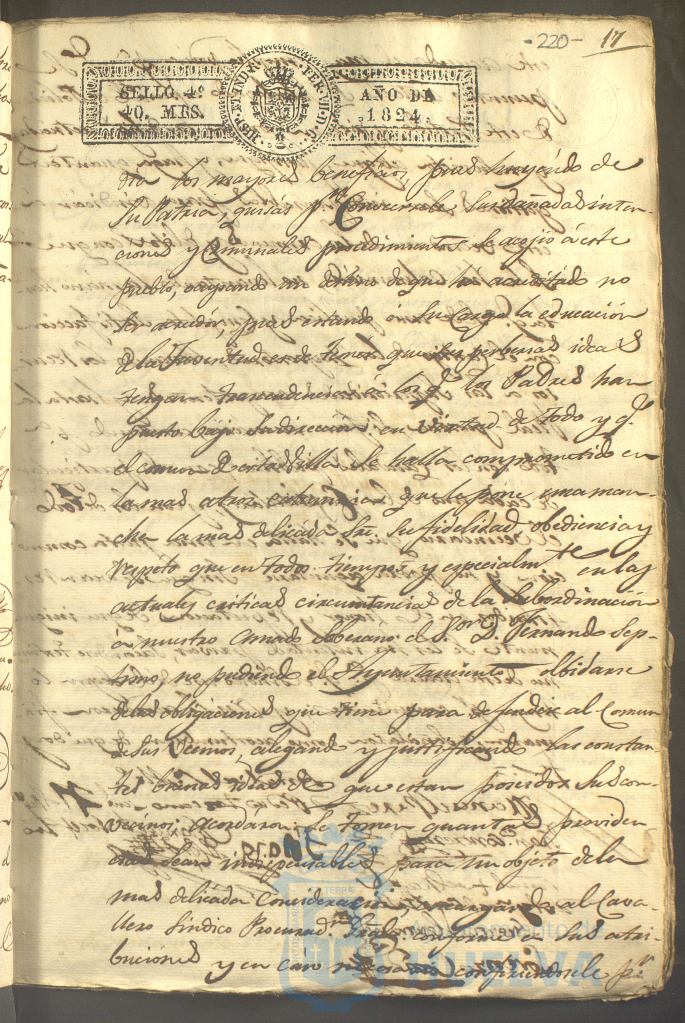 -220- 17
HISP. ET IND. R. FER. VII. D. G.
SELLO 4º AÑO DE
40. MRS. 1824.
los mayores beneficios, pues huyendo de
su Patria, quisás pr. conocersele sus dañadas inten-
ciones y criminales procedimientos se acojió á este
Pueblo, ocupando un destino de que ha acreditado no
ser acreedor, pues estando á su cargo la educación
de la Juventud es de temer que sus perbersas ideas
tengan trascendencia á los qe. los Padres han
puesto bajo su direccion: en virtud de todo y qe.
el comun de esta Villa se halla comprometido en
la mas atroz calumnia que le pone una man-
cha la mas delicada su fidelidad, obediencia y
respeto que en todos tiempos, y especialmte. en las
actuales criticas circunstancias de la subordinación
á nuestro amado soberano el Sor. D. Fernando Sep-
timo, no pudiendo el Ayuntamiento olbidarse
de las obligaciones que tiene para defender al Comun
de sus vecinos, alegando y justificando las constan-
tes buenas ideas de que estan poseidos sus con-
vecinos; acordaron: se tomen quantas providen
cias sean indispensables para un objeto de la
mas delicada consideracion encargando al Cava-
llero Sindico Procurador conforme a sus atri-
buciónes y en caso necesario confiriendosele pr.
HUELVA